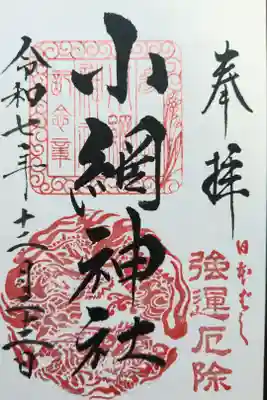 奉拝
日本ばし
強運厄除
小網神社
令和七年十二月